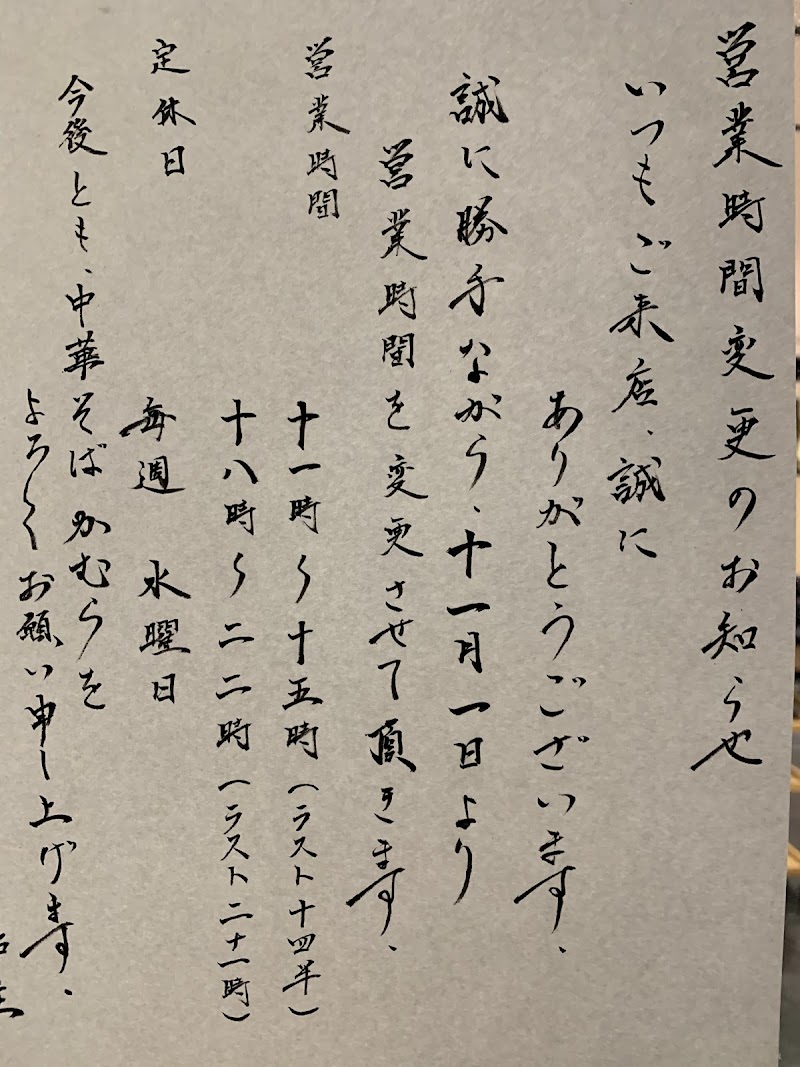 営業時間変更のお知らせ
いつもご来店、誠に
ありがとうございます、
誠に勝手ながら、十一月一日より
営業時間を変更させて頂きます、
営業時間
十一時〜十五時(ラスト十四半)
十八時〜二二時(ラスト二十一時)
定休日
毎週 水曜日
今後とも、中華そばかむらを
よろしくお願い申し上げます、